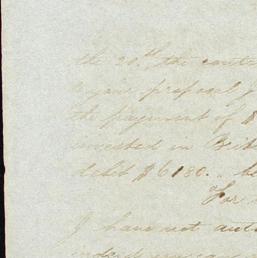 the 20th, the cont
to your proposal
the payment of $
invested in
debit $6180..
For
I have not aut